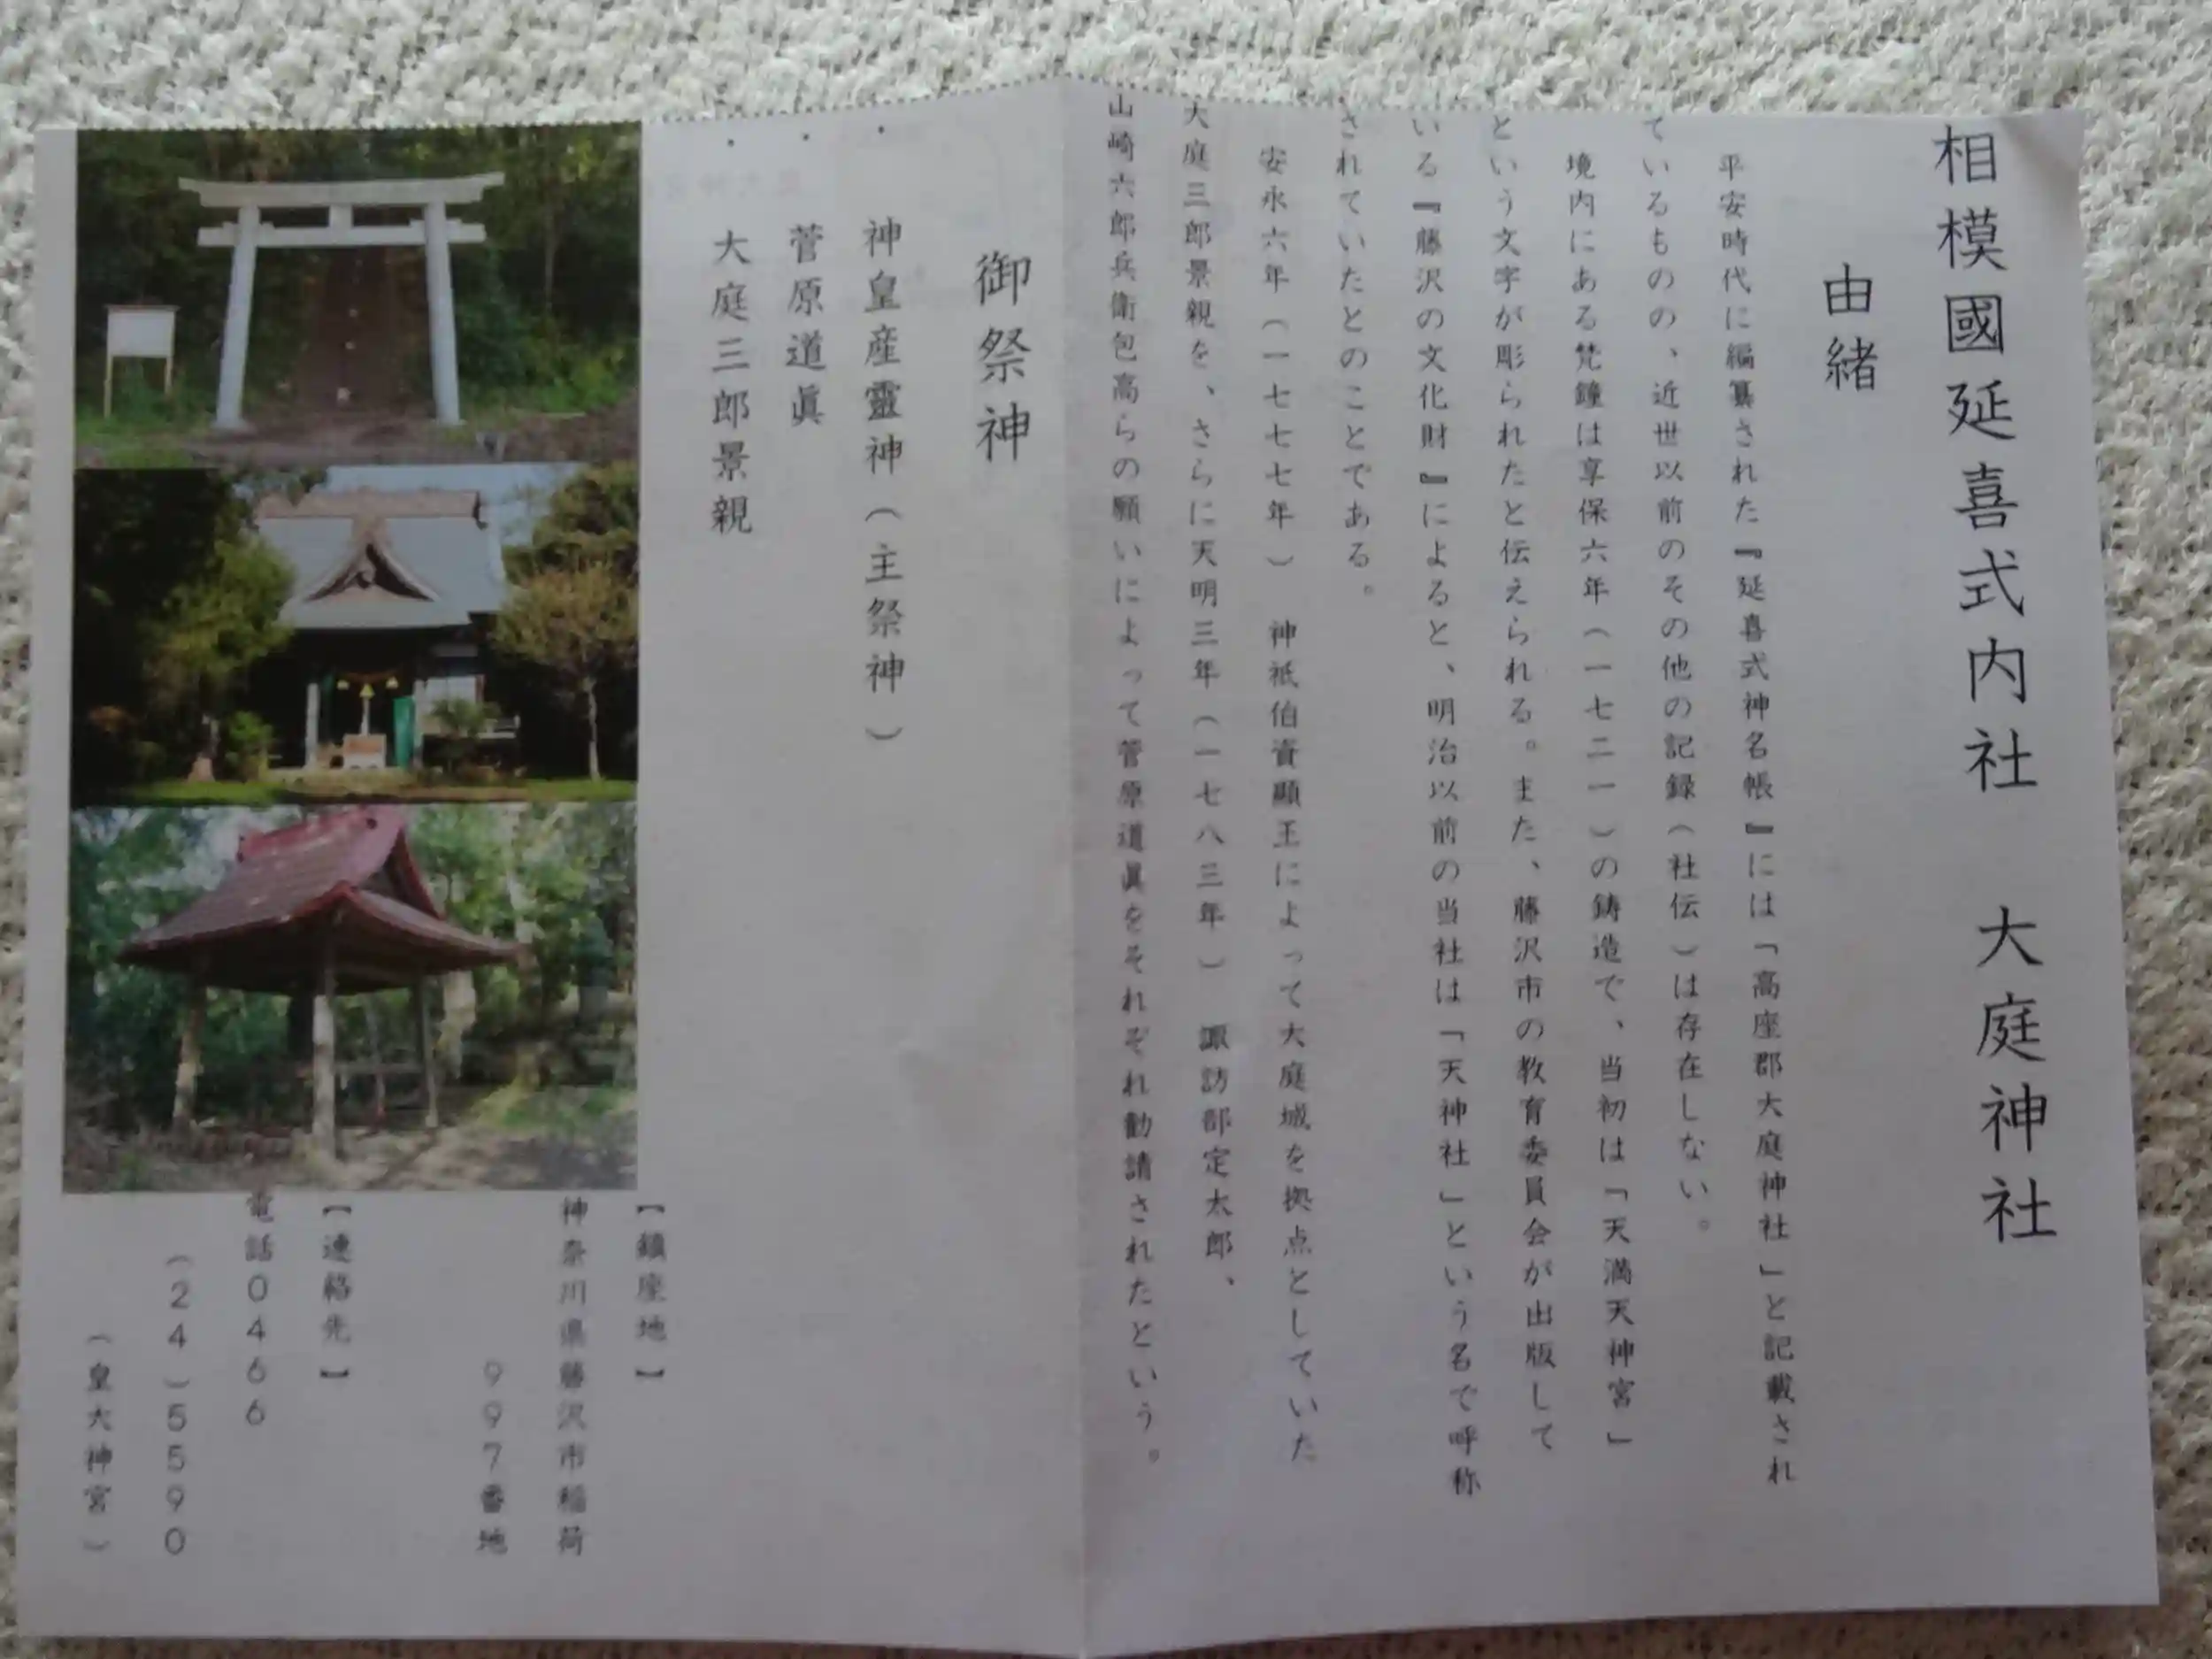 相模國延喜式内社　大庭神社
由緒
平安時代に編纂された『延喜式神名帳』には「高座郡大庭神社」と記載され
ているものの、近世以前のその他の記録（社伝）は存在しない。
境内にある梵鐘は享保六年（一七二一）の鋳造で、当初は「天満天神宮」
という文字が彫られたと伝えられる。また、藤沢市の教育委員会が出版して
いる『藤沢の文化財』によると、明治以前の当社は「天神社」という名で呼称
されていたとのことである。
安永六年（一七七七年）　神祇伯資顯王によって大庭城を拠点としていた
大庭三郎景親を、さらに天明三年（一七八三年）　諏訪部定太郎、
山崎六郎兵衛包高らの願いによって菅原道眞をそれぞれ勧請されたという。
御祭神
・　神皇産靈神（主祭神）
・　菅原道眞
・　大庭三郎景親
【鎮座地】
神奈川県藤沢市稲荷
997番地
【連絡先】
電話0466
（24）5590
（皇大神宮）